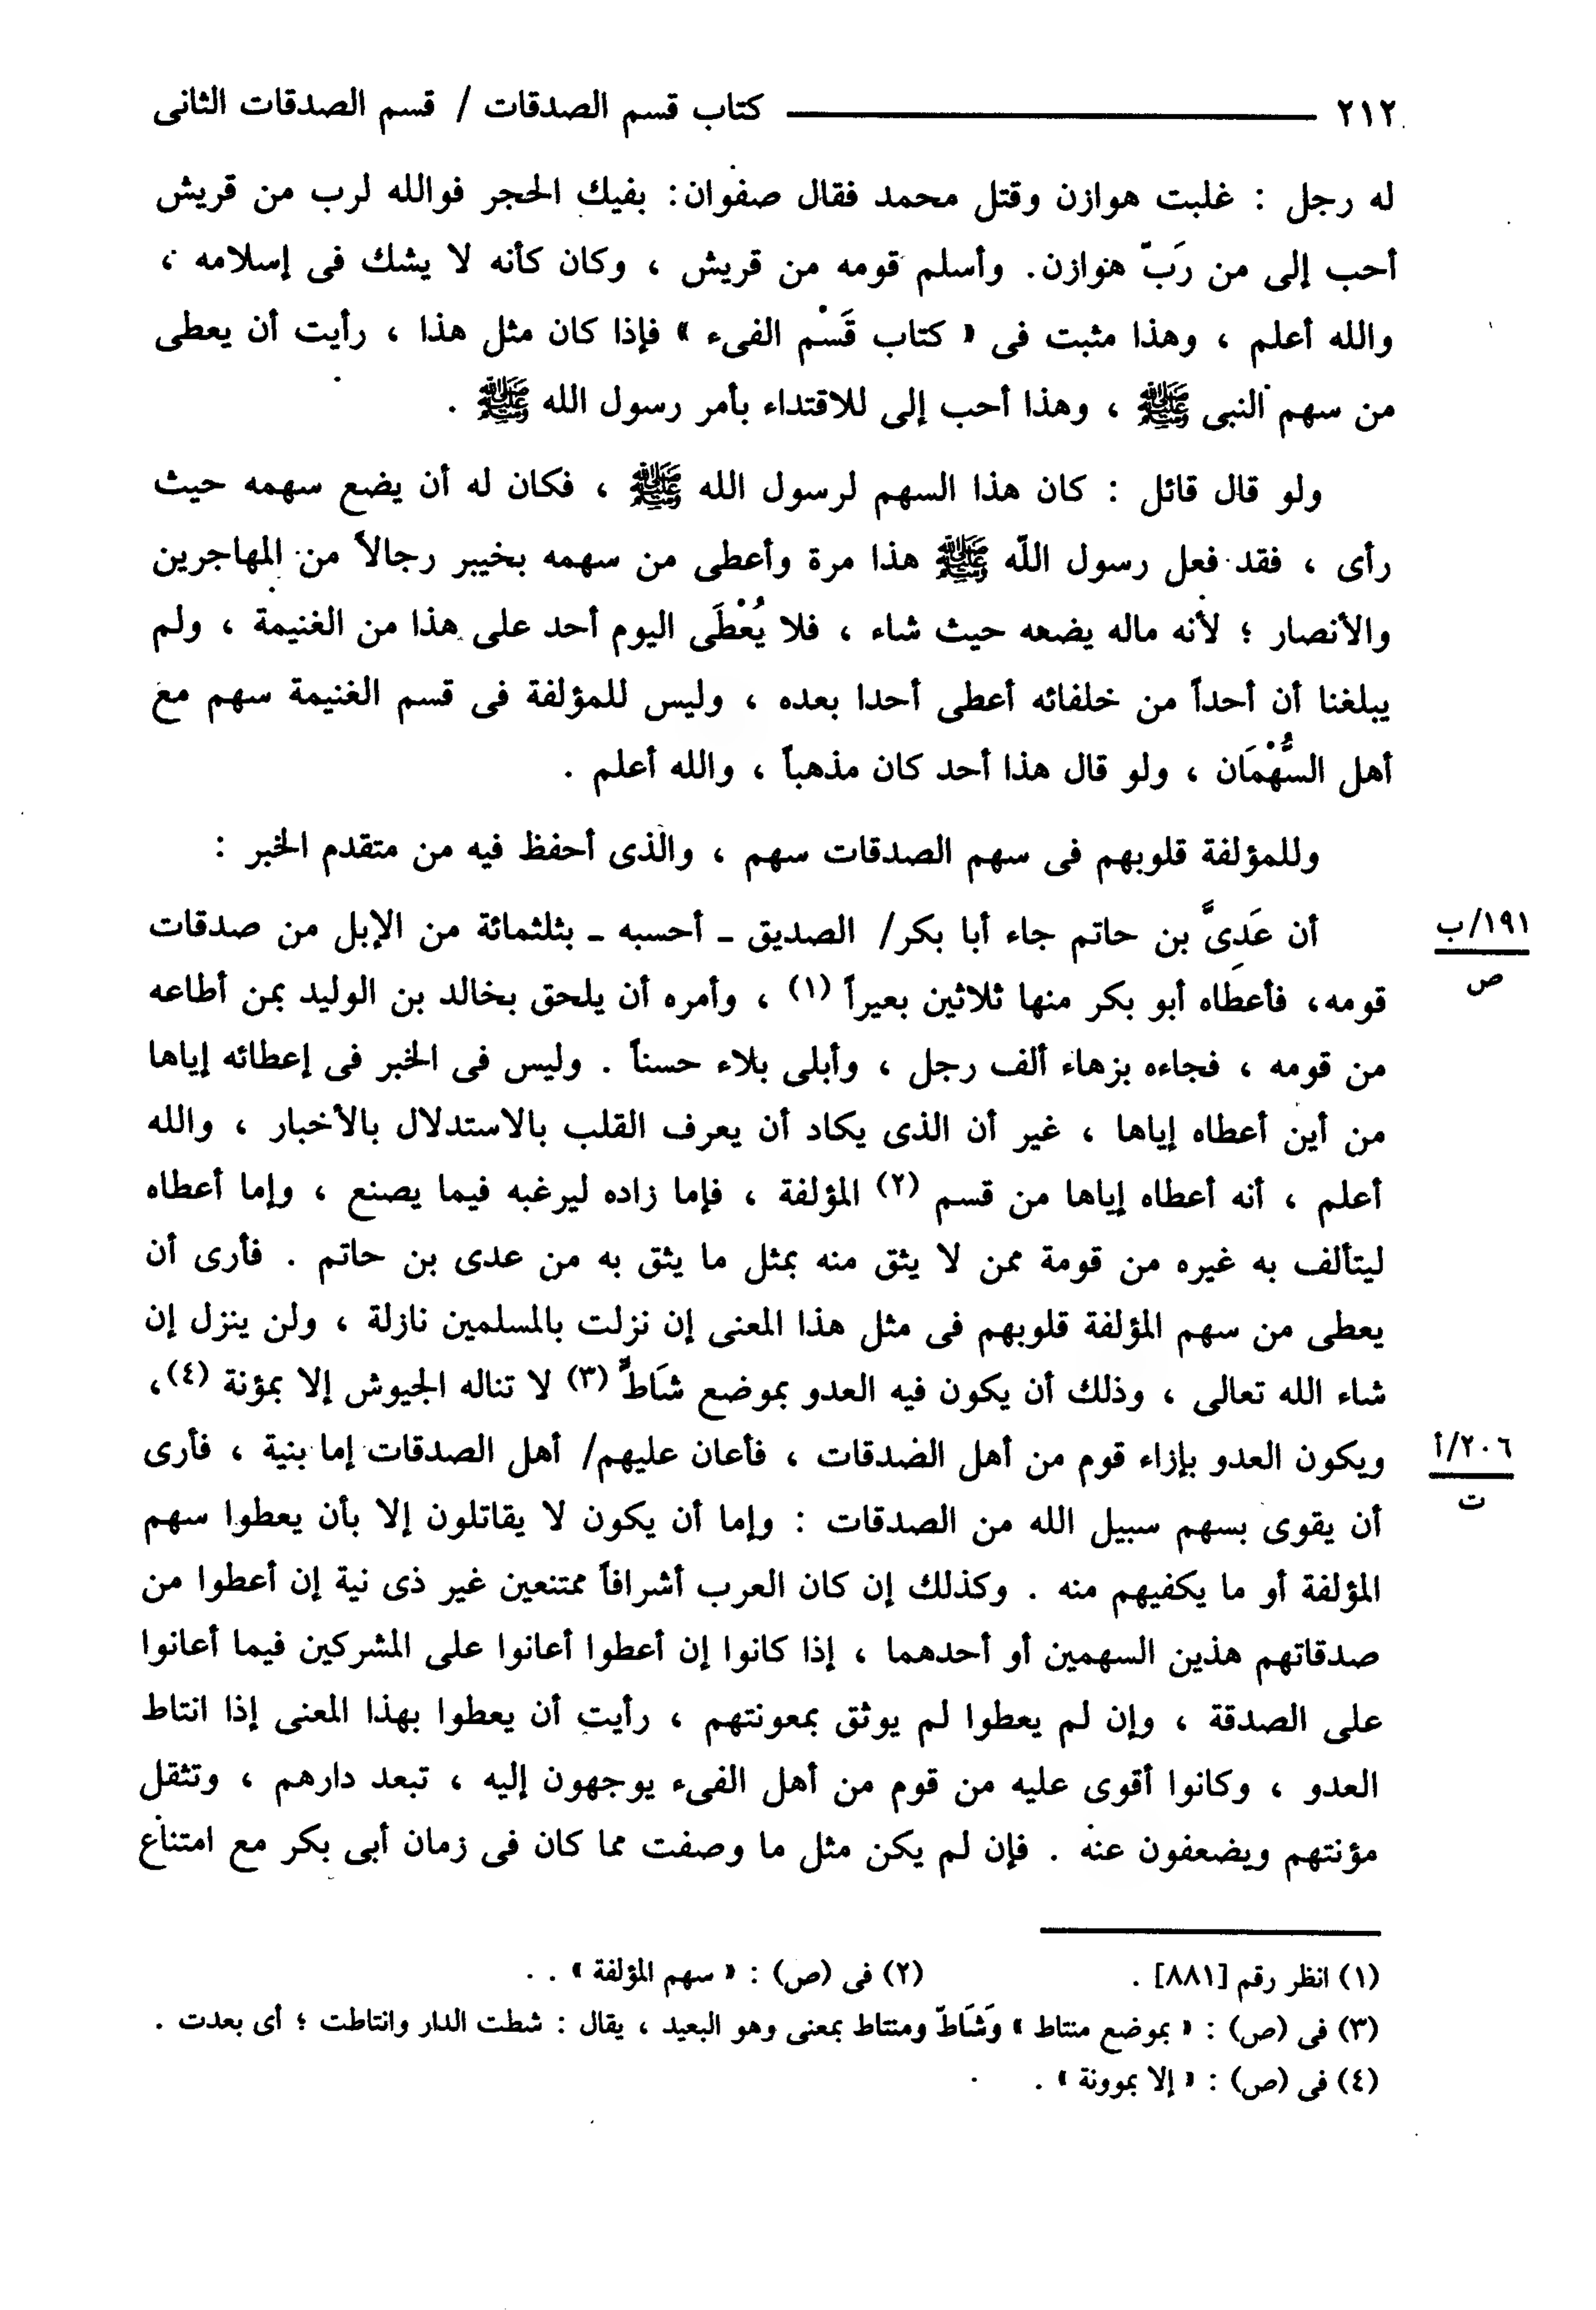 ٢١٢ ـــــــــــــ كتاب قسم الصدقات / قسم الصدقات الثانى
له رجل : غلبت هوازن وقتل محمد فقال صفوان: بفيك الحجر فوالله لرب من قريش
أحب إلى من رَبّ هوازن. وأسلم قومه من قريش ، وكان كأنه لا يشك فى إسلامه ،
والله أعلم ، وهذا مثبت فى « كتاب قَسْم الفىء » فإذا كان مثل هذا ، رأيت أن يعطى
من سهم النبى ﷺ ، وهذا أحب إلى للاقتداء بأمر رسول الله ﷺ .
ولو قال قائل : كان هذا السهم لرسول الله ﷺ ، فكان له أن يضع سهمه حيث
رأى ، فقد فعل رسول الله ﷺ هذا مرة وأعطى من سهمه بخيبر رجالاً من المهاجرين
والأنصار ؛ لأنه ماله يضعه حيث شاء ، فلا يُعْطَى اليوم أحد على هذا من الغنيمة ، ولم
يبلغنا أن أحداً من خلفائه أعطى أحدا بعده ، وليس للمؤلفة فى قسم الغنيمة سهم مع
أهل السُّهْمَان ، ولو قال هذا أحد كان مذهباً ، والله أعلم .
وللمؤلفة قلوبهم فى سهم الصدقات سهم ، والذى أحفظ فيه من متقدم الخبر :
أن عَدِىَّ بن حاتم جاء أبا بكر/ الصديق ـ أحسبه ـ بثلثمائة من الإبل من صدقات
١٩١/ب
ص
قومه، فأعطاه أبو بكر منها ثلاثين بعيراً (١) ، وأمره أن يلحق بخالد بن الوليد بمن أطاعه
من قومه ، فجاءه بزهاء ألف رجل ، وأبلى بلاء حسناً . وليس فى الخبر فى إعطائه إياها
من أين أعطاه إياها ، غير أن الذى يكاد أن يعرف القلب بالاستدلال بالأخبار ، والله
أعلم ، أنه أعطاه إياها من قسم (٢) المؤلفة ، فإما زاده ليرغبه فيما يصنع ، وإما أعطاه
ليتألف به غيره من قومة ممن لا يثق منه بمثل ما يثق به من عدى بن حاتم . فأرى أن
يعطى من سهم المؤلفة قلوبهم فى مثل هذا المعنى إن نزلت بالمسلمين نازلة ، ولن ينزل إن
شاء الله تعالى ، وذلك أن يكون فيه العدو بموضع شَاطٍّ (٣) لا تناله الجيوش إلا بمؤنة (٤)،
ويكون العدو بإزاء قوم من أهل الصدقات ، فأعان عليهم/ أهل الصدقات إما بنية ، فأرى
٢٠٦/أ
ت
أن يقوى بسهم سبيل الله من الصدقات : وإما أن يكون لا يقاتلون إلا بأن يعطوا سهم
المؤلفة أو ما يكفيهم منه . وكذلك إن كان العرب أشرافاً ممتنعين غير ذى نية إن أعطوا من
صدقاتهم هذين السهمين أو أحدهما ، إذا كانوا إن أعطوا أعانوا على المشركين فيما أعانوا
على الصدقة ، وإن لم يعطوا لم يوثق بمعونتهم ، رأيت أن يعطوا بهذا المعنى إذا انتاط
العدو ، وكانوا أقوى عليه من قوم من أهل الفىء يوجهون إليه ، تبعد دارهم ، وتثقل
مؤنتهم ويضعفون عنه . فإن لم يكن مثل ما وصفت مما كان فى زمان أبى بكر مع امتناع
(١) انظر رقم [٨٨١] . (٢) فى (ص) : « سهم المؤلفة » .
(٣) فى (ص) : « بموضع منتاط » وَشَاطّ ومنتاط بمعنى وهو البعيد ، يقال : شطت الدار وانتاطت ؛ أى بعدت .
(٤) فى (ص) : « إلا بموونة » .